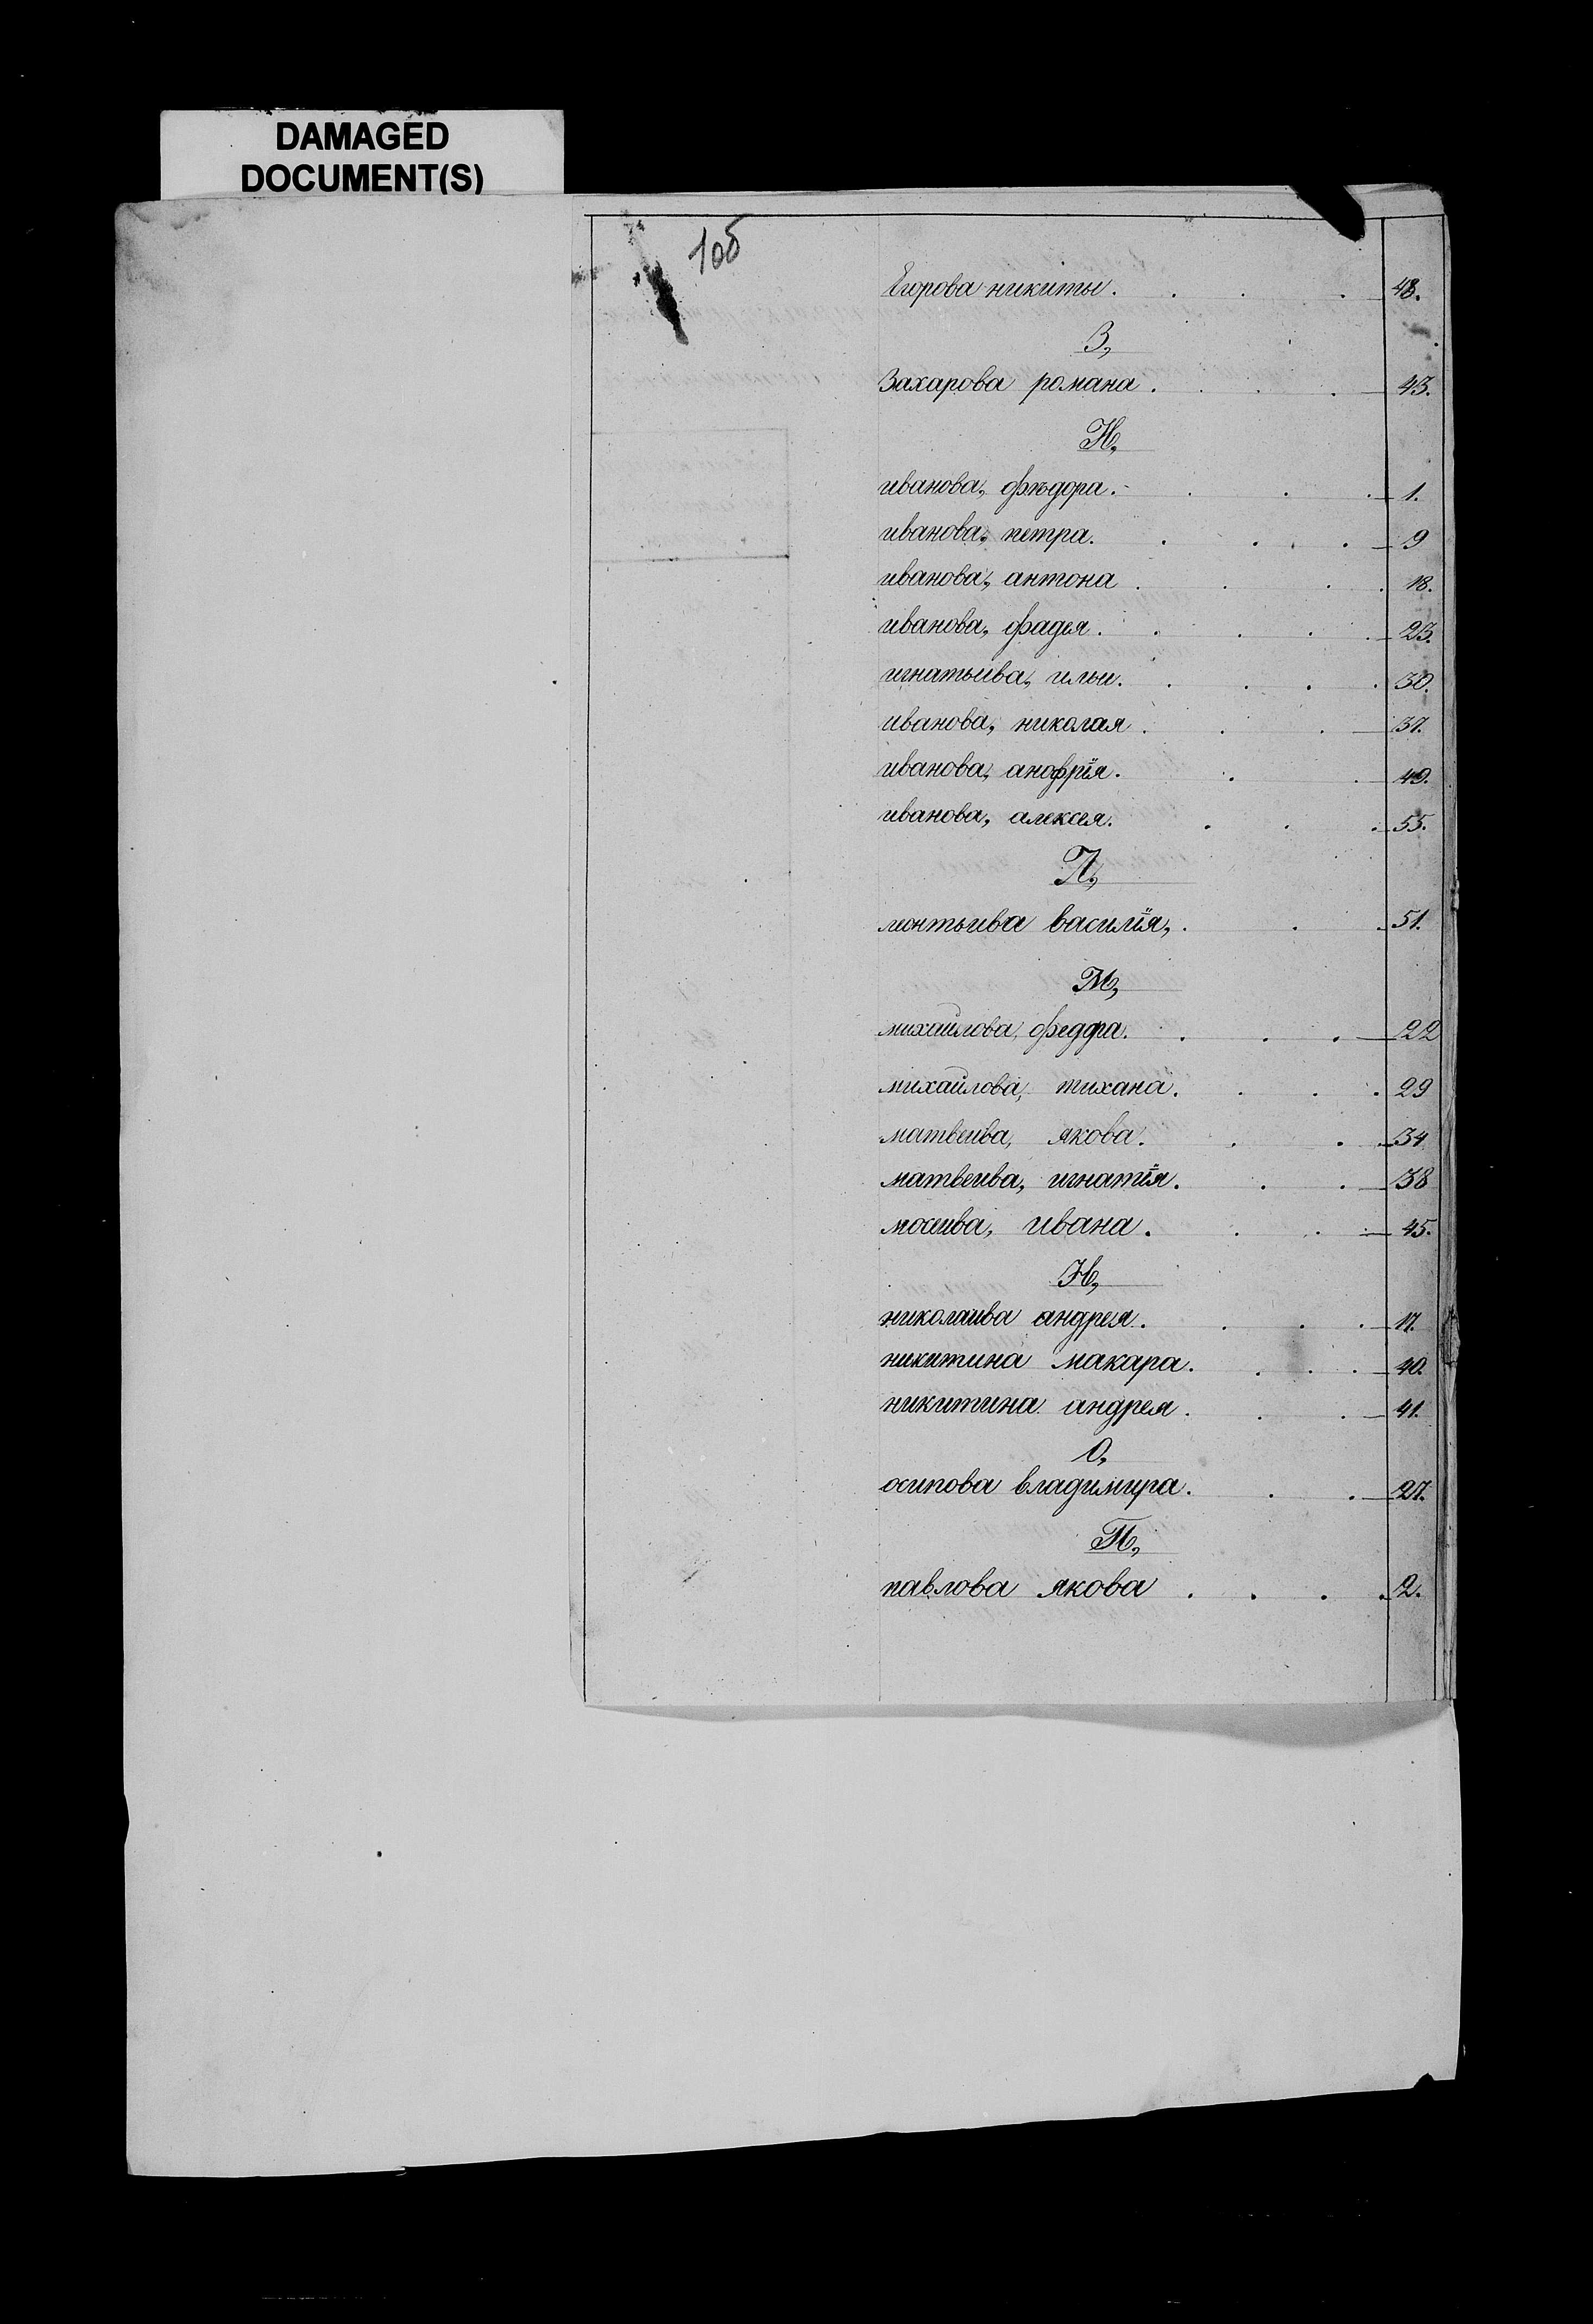 DAMAGED
DOCUMENT(S)
106
Егорова никиты. 48.
З,
Захарова романа. 43.
И,
иванова, фѣдора. 1.
иванова, петра. 9
иванова, антона 18.
иванова, фадея. 23.
игнатьива, ильи. 30.
иванова, николая 37.
иванова, анофрія. 49.
иванова, алексея. 55.
Л,
леонтьива василія, 51.
М,
михайлова, федора. 22
михайлова, тихана. 29
матвеива, якова. 34
матвеива, игнатія. 38
мосеива, ивана. 45.
Н,
николаива андрея. 17.
никитина макара. 40.
никитина андрея. 41.
О,
осипова владимира. 27.
П,
павлова якова 2.